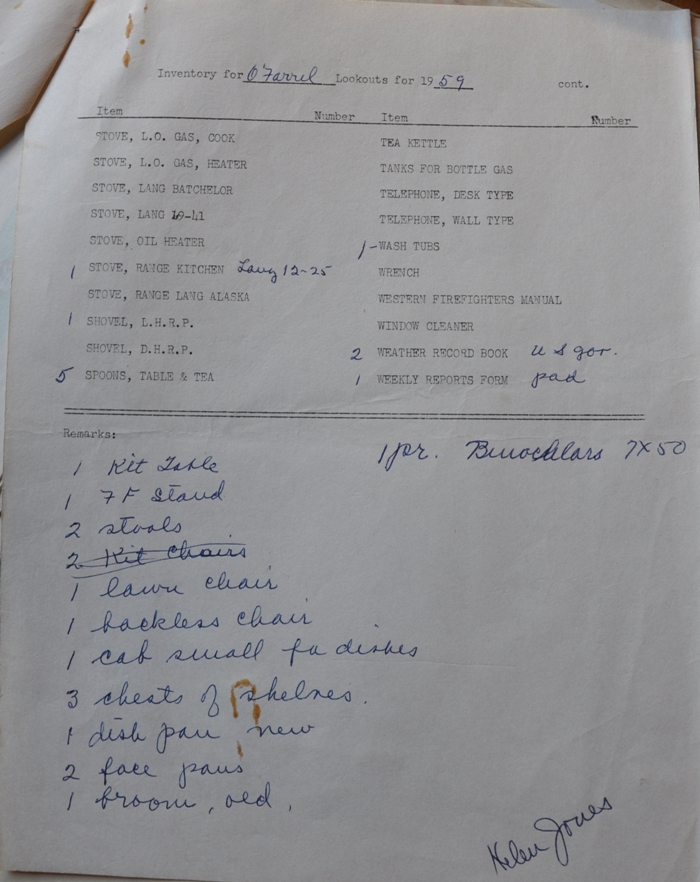 Inventory for O'Farrel Lookouts for 1959 cont.
Item Number Item Number
STOVE, L.O. GAS, COOK
STOVE, L.O. GAS, HEATER
STOVE, LANG BATCHELOR
STOVE, LANG 19-41
STOVE, OIL HEATER
1 STOVE, RANGE KITCHEN Lang 12-25
STOVE, RANGE LANG ALASKA
1 SHOVEL, L.H.R.P.
SHOVEL, D.H.R.P.
5 SPOONS, TABLE & TEA
TEA KETTLE
TANKS FOR BOTTLE GAS
TELEPHONE, DESK TYPE
TELEPHONE, WALL TYPE
1- WASH TUBS
WRENCH
WESTERN FIREFIGHTERS MANUAL
WINDOW CLEANER
2 WEATHER RECORD BOOK U S gov.
1 WEEKLY REPORTS FORM pad
Remarks:
1 Kit Table
1 7 F Stand
2 stools
2 Kit Chairs
1 lawn chair
1 backless chair
1 cab small fa dishes
3 chests of shelves.
1 dish pan new
2 face pans
1 broom, old,
1 pr. Binochlars 7X50
Helen Jones